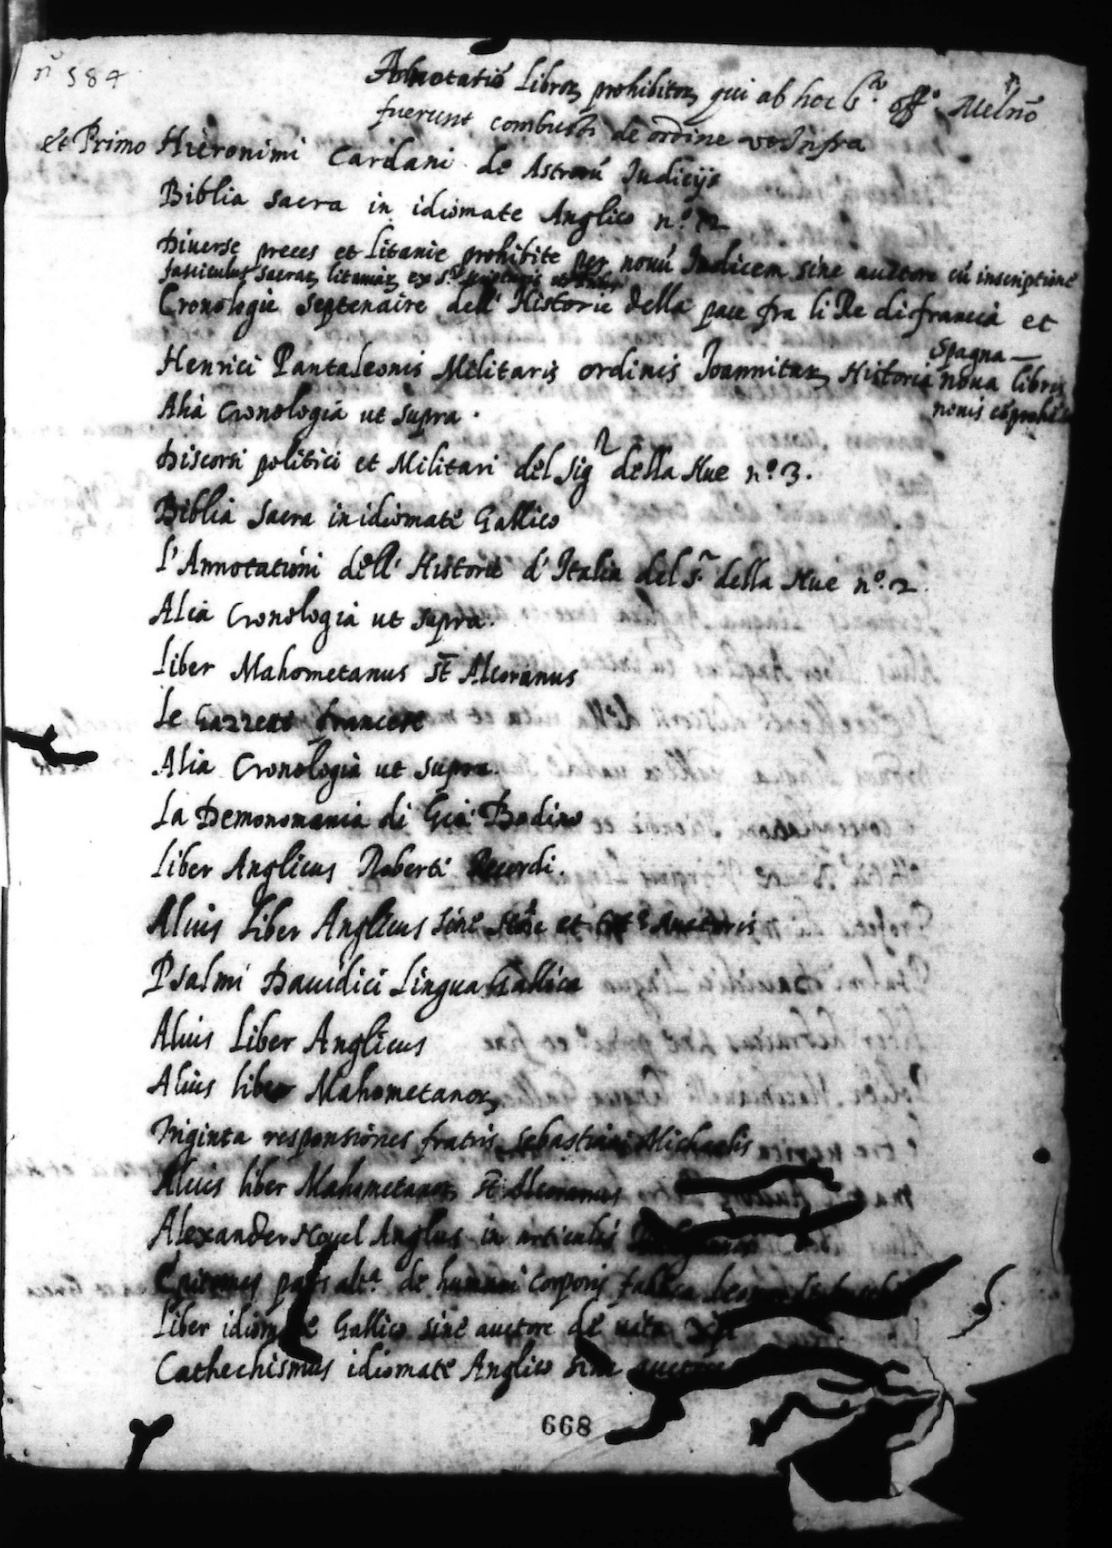 nº 584
Adnotatio Libror prohibitor qui ab hoc S.to off.o Melno
fuerunt combusti de ordine ut Infra
et Primo Hieronimi Cardani de Astrorū Iudicijs
Biblia sacra in idiomate Anglico n.º 12
Diverse preces et Litanie prohibite per novū Indicem sine auctore cū inscriptione
fasciculus sacrar litaniar ex S.
Cronologie septenaire dell' Historie della pace fra li Re di francia et
Spagna
Henrici Pantaleonis Militaris ordinis Joannitar Historia nova libris
Alia Cronologia ut supra.
Discorsi politici et Militari del Sig.r della Nue n.º 3.
Biblia Sacra in idiomate Gallico
L'Annotationi dell' Historie d'Italia del S.r della Nue n.º 2.
Alia Cronologia ut supra.
Liber Mahometanus st Alcoranus
Le Gazzette francese
Alia Cronologia ut supra.
La Demonomania di Giā Bodino
Liber Anglicus Roberti Recordi.
Alius Liber Anglicus sine et Auctoris
Psalmi Davidici Lingua Gallica
Alius Liber Anglicus
Alius liber Mahometanor
Triginta responsiones fratris Sebastiani Michaelis
Alius liber Mahometanor st Alcoranus
Alexander Novel Anglus in articulis
pars alt.a de humani corporis
Liber idiomate Gallico sine auctore de vita
Cathechismus idiomate Anglico sine auctore
668